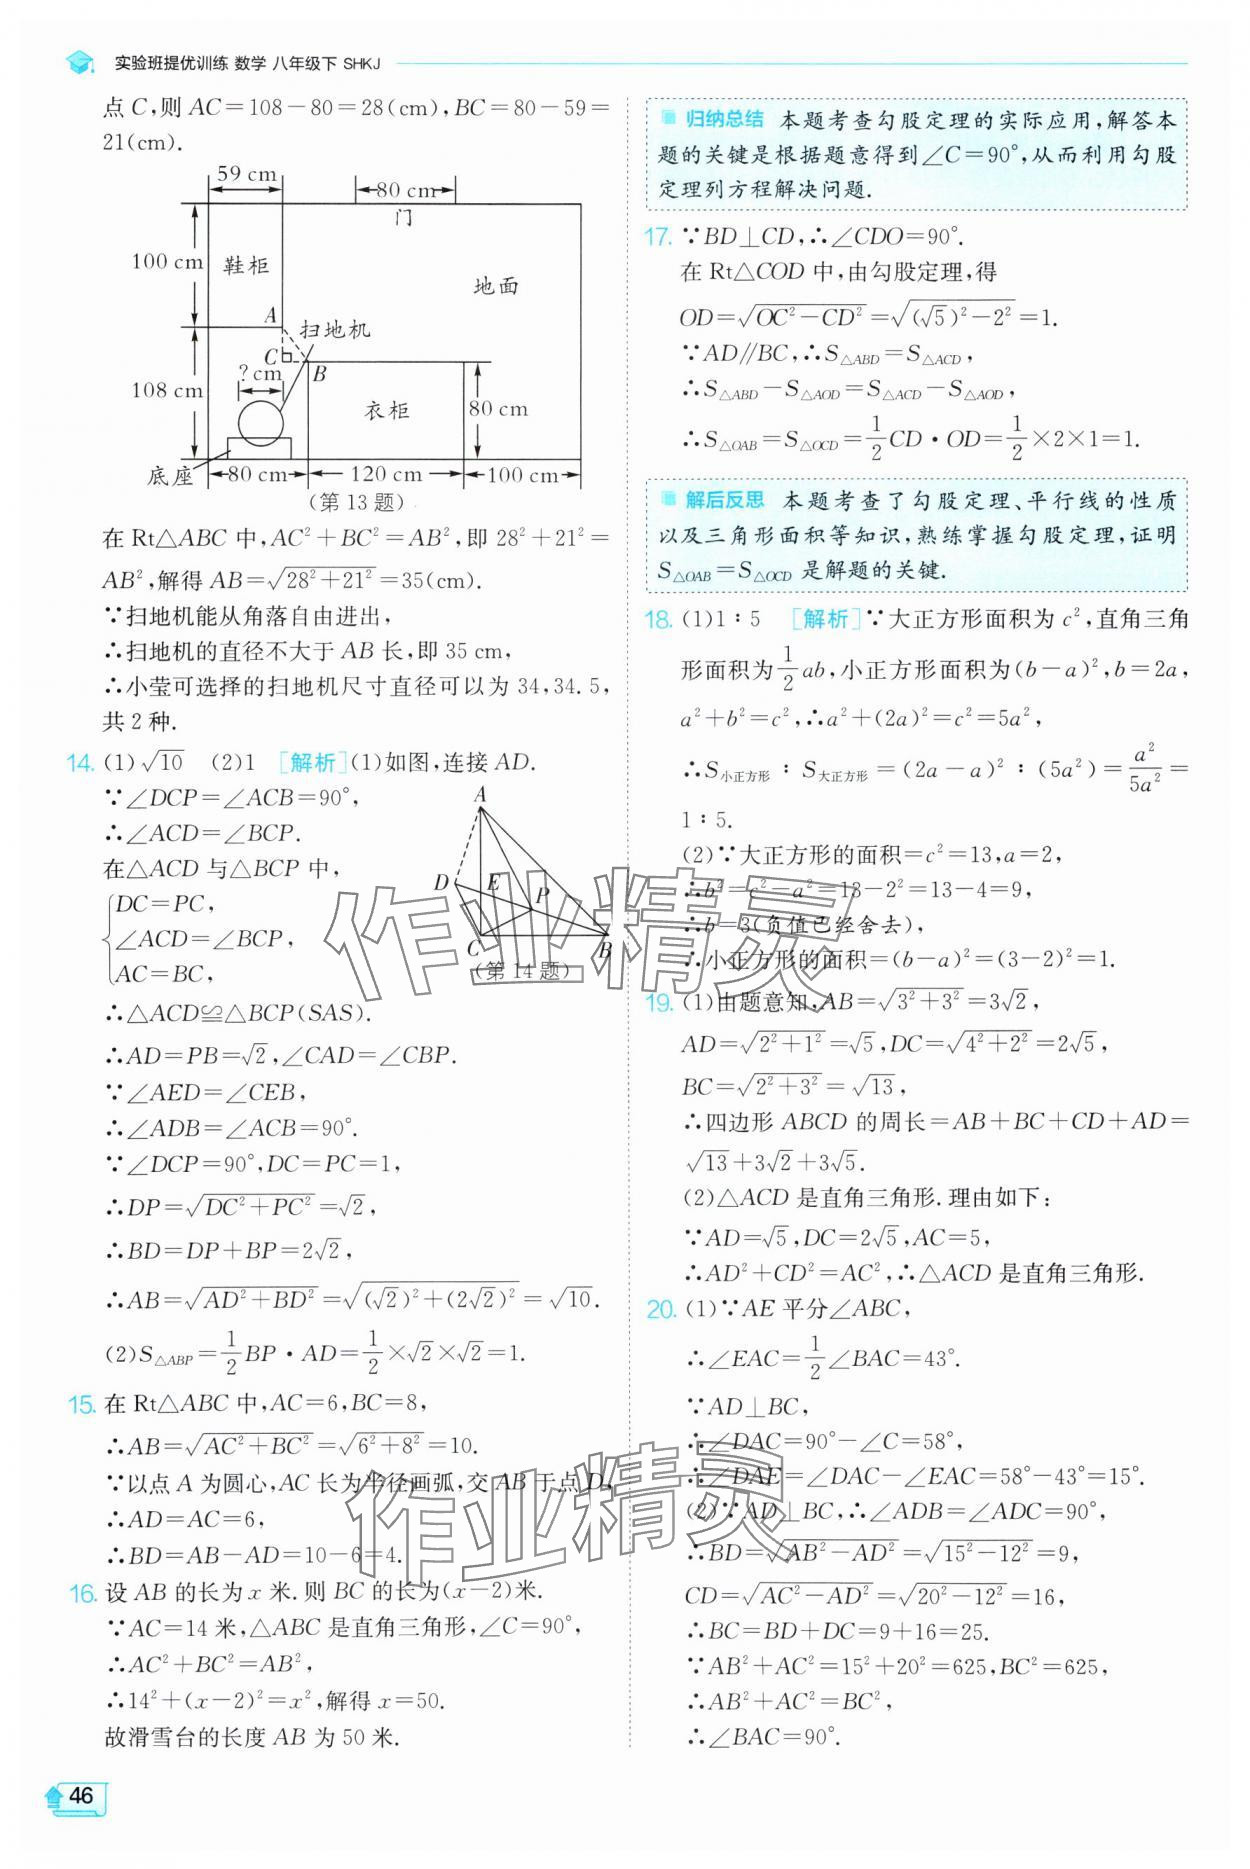 实验班提优训练 数学 八年级下 SHKJ
点 C,则 AC=108-80=28(cm),BC=80-59=
21(cm).
59 cm
80 cm
门
100 cm
鞋柜
地面
A
扫地机
C
B
? cm
108 cm
衣柜
80 cm
底座
80 cm
120 cm
100 cm
(第 13 题)
在 Rt△ABC 中,AC²+BC²=AB²,即 28²+21²=
AB²,解得 AB=√(28²+21²)=35(cm).
∵扫地机能从角落自由进出,
∴扫地机的直径不大于 AB 长,即 35 cm,
∴小莹可选择的扫地机尺寸直径可以为 34,34.5,
共 2 种.
14. (1)√10 (2)1 [解析](1)如图,连接 AD.
∵∠DCP=∠ACB=90°,
∴∠ACD=∠BCP.
在△ACD 与△BCP 中,
{DC=PC,
∠ACD=∠BCP,
AC=BC,
A
D
E
P
C
B
(第 14 题)
∴△ACD≌△BCP(SAS).
∴AD=PB=√2,∠CAD=∠CBP.
∵∠AED=∠CEB,
∴∠ADB=∠ACB=90°.
∵∠DCP=90°,DC=PC=1,
∴DP=√(DC²+PC²)=√2,
∴BD=DP+BP=2√2,
∴AB=√(AD²+BD²)=√((√2)²+(2√2)²)=√10.
(2)S△ABP=1/2 BP·AD=1/2×√2×√2=1.
15. 在 Rt△ABC 中,AC=6,BC=8,
∴AB=√(AC²+BC²)=√(6²+8²)=10.
∵以点 A 为圆心,AC 长为半径画弧,交 AB 于点 D,
∴AD=AC=6,
∴BD=AB-AD=10-6=4.
16. 设 AB 的长为 x 米.则 BC 的长为(x-2)米.
∵AC=14 米,△ABC 是直角三角形,∠C=90°,
∴AC²+BC²=AB²,
∴14²+(x-2)²=x²,解得 x=50.
故滑雪台的长度 AB 为 50 米.
归纳总结 本题考查勾股定理的实际应用,解答本
题的关键是根据题意得到∠C=90°,从而利用勾股
定理列方程解决问题.
17. ∵BD⊥CD,∴∠CDO=90°.
在 Rt△COD 中,由勾股定理,得
OD=√(OC²-CD²)=√((√5)²-2²)=1.
∵AD∥BC,∴S△ABD=S△ACD,
∴S△ABD-S△AOD=S△ACD-S△AOD,
∴S△OAB=S△OCD=1/2 CD·OD=1/2×2×1=1.
解后反思 本题考查了勾股定理、平行线的性质
以及三角形面积等知识,熟练掌握勾股定理,证明
S△OAB=S△OCD 是解题的关键.
18. (1)1∶5 [解析]∵大正方形面积为 c²,直角三角
形面积为1/2 ab,小正方形面积为(b-a)²,b=2a,
a²+b²=c²,∴a²+(2a)²=c²=5a²,
∴S小正方形∶S大正方形=(2a-a)²∶(5a²)=a²/5a²=
1∶5.
(2)∵大正方形的面积=c²=13,a=2,
∴b²=c²-a²=13-2²=13-4=9,
∴b=3(负值已经舍去),
∴小正方形的面积=(b-a)²=(3-2)²=1.
19. (1)由题意知,AB=√(3²+3²)=3√2,
AD=√(2²+1²)=√5,DC=√(4²+2²)=2√5,
BC=√(2²+3²)=√13,
∴四边形 ABCD 的周长=AB+BC+CD+AD=
√13+3√2+3√5.
(2)△ACD 是直角三角形.理由如下:
∵AD=√5,DC=2√5,AC=5,
∴AD²+CD²=AC²,∴△ACD 是直角三角形.
20. (1)∵AE 平分∠ABC,
∴∠EAC=1/2∠BAC=43°.
∵AD⊥BC,
∴∠DAC=90°-∠C=58°,
∴∠DAE=∠DAC-∠EAC=58°-43°=15°.
(2)∵AD⊥BC,∴∠ADB=∠ADC=90°,
∴BD=√(AB²-AD²)=√(15²-12²)=9,
CD=√(AC²-AD²)=√(20²-12²)=16,
∴BC=BD+DC=9+16=25.
∵AB²+AC²=15²+20²=625,BC²=625,
∴AB²+AC²=BC²,
∴∠BAC=90°.
作业精灵
作业精灵
46